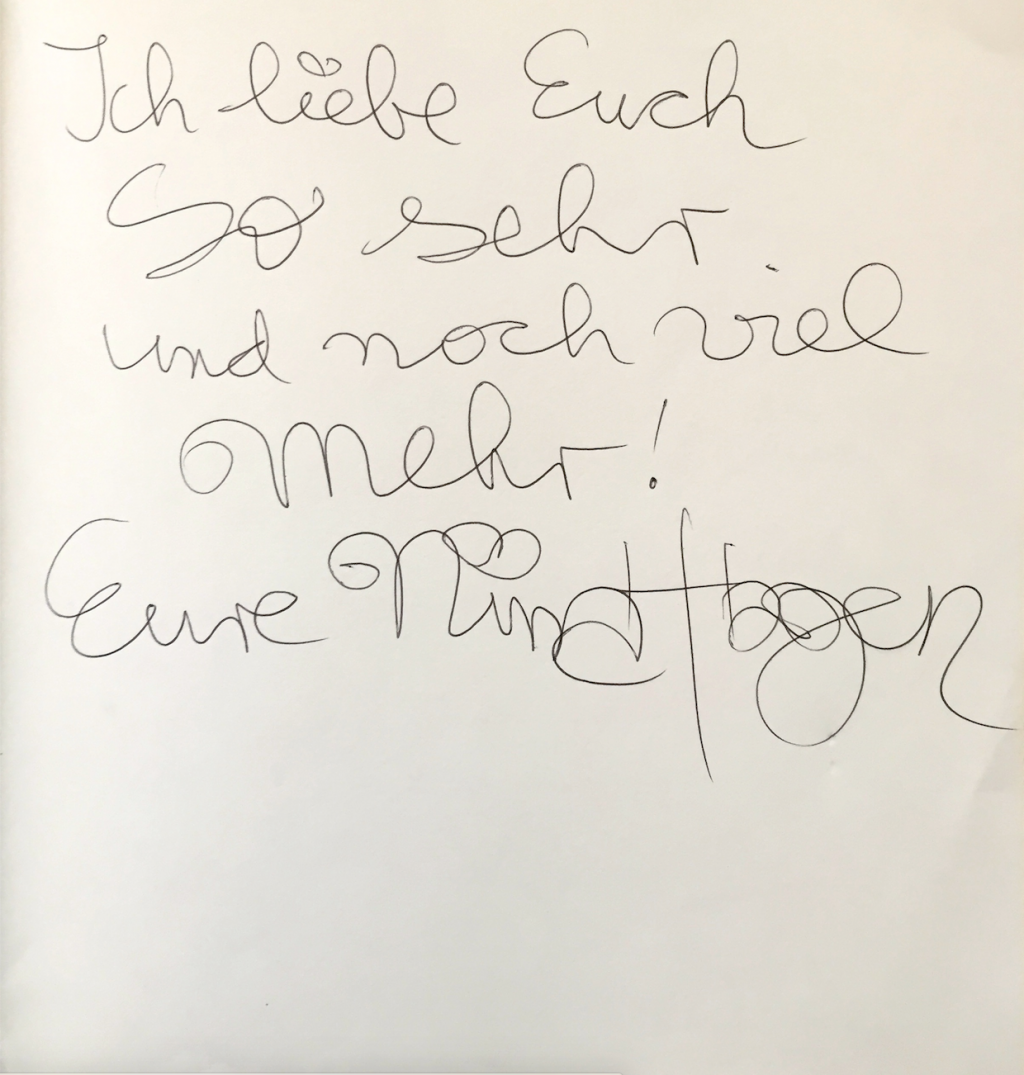 Ich liebe Euch
So sehr
und noch viel
Mehr!
Eure